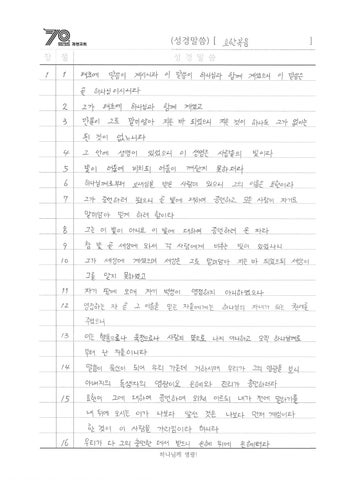 70 개봉교회
(성경말씀) [ 요한복음 ]
장 절 성경말씀
1 1 태초에 말씀이 계시니라 이 말씀이 하나님과 함께 계셨으니 이 말씀은
곧 하나님이시니라
2 그가 태초에 하나님과 함께 계셨고
3 만물이 그로 말미암아 지은 바 되었으니 지은 것이 하나도 그가 없이는
된 것이 없느니라
4 그 안에 생명이 있었으니 이 생명은 사람들의 빛이라
5 빛이 어둠에 비치되 어둠이 깨닫지 못하더라
6 하나님께로부터 보내심을 받은 사람이 있으니 그의 이름은 요한이라
7 그가 증언하러 왔으니 곧 빛에 대하여 증언하고 모든 사람이 자기로
말미암아 믿게 하려 함이라
8 그는 이 빛이 아니요 이 빛에 대하여 증언하러 온 자라
9 참 빛 곧 세상에 와서 각 사람에게 비추는 빛이 있었나니
10 그가 세상에 계셨으며 세상은 그로 말미암아 지은 바 되었으되 세상이
그를 알지 못하였고
11 자기 땅에 오매 자기 백성이 영접하지 아니하였으나
12 영접하는 자 곧 그 이름을 믿는 자들에게는 하나님의 자녀가 되는 권세를
주셨으니
13 이는 혈통으로나 육정으로나 사람의 뜻으로 나지 아니하고 오직 하나님께로
부터 난 자들이니라
14 말씀이 육신이 되어 우리 가운데 거하시매 우리가 그의 영광을 보니
아버지의 독생자의 영광이요 은혜와 진리가 충만하더라
15 요한이 그에 대하여 증언하여 외쳐 이르되 내가 전에 말하기를
내 뒤에 오시는 이가 나보다 앞선 것은 나보다 먼저 계심이라
한 것이 이 사람을 가리킴이라 하니라
16 우리가 다 그의 충만한 데서 받으니 은혜 위에 은혜러라
하나님께 영광!